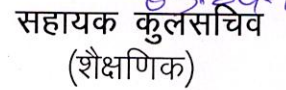 सहायक कुलसचिव
(शैक्षणिक)